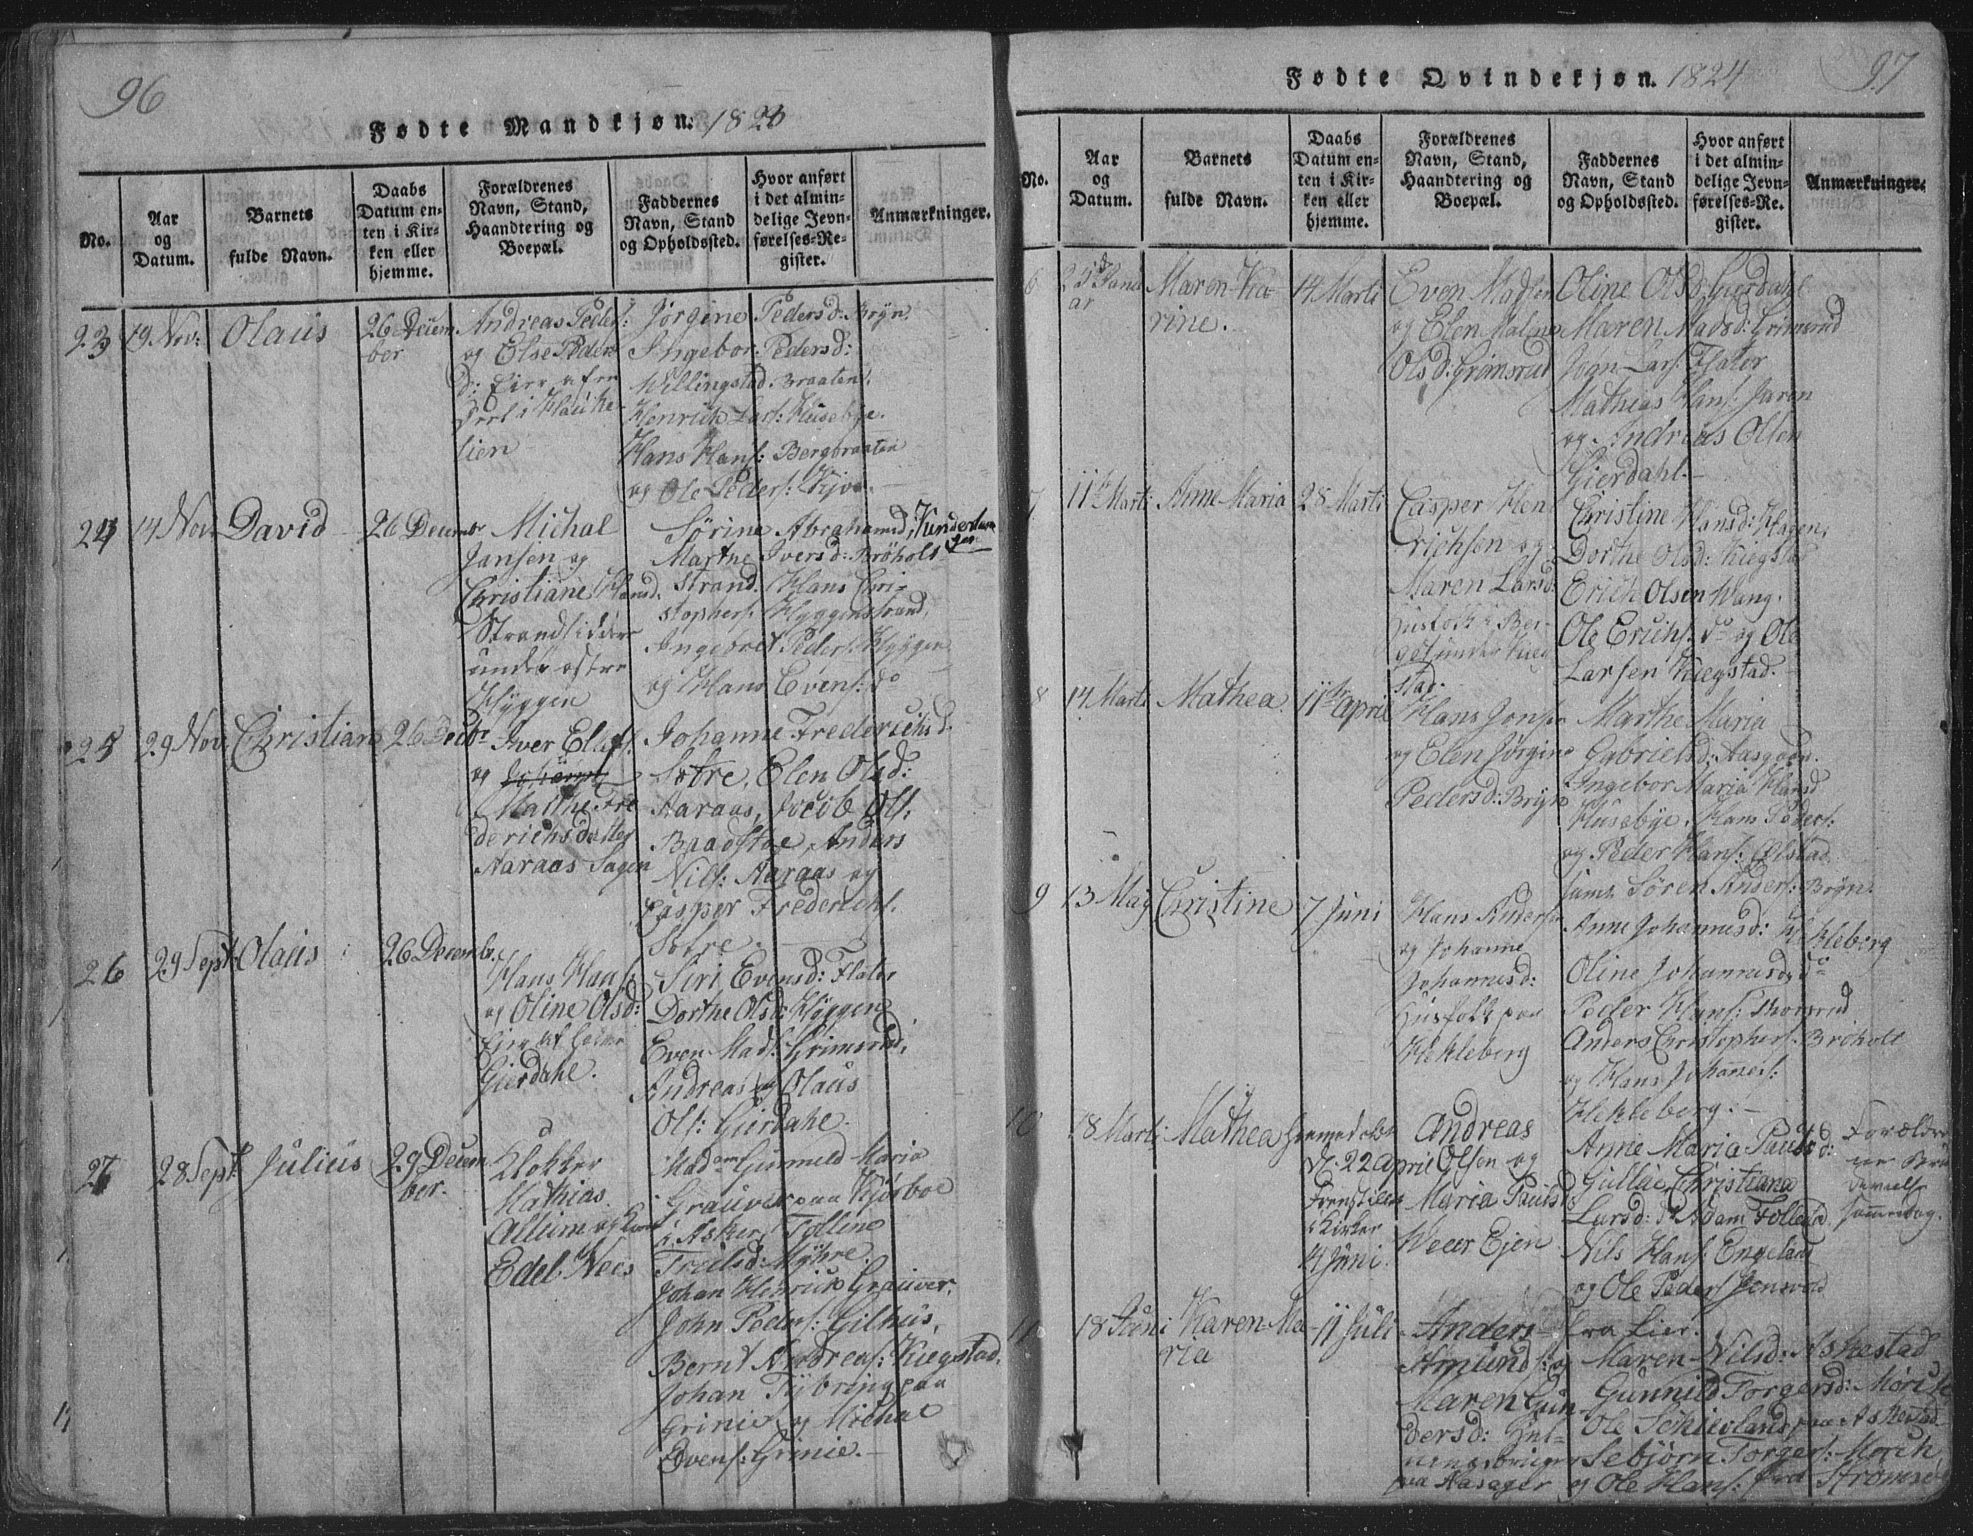 96
Fødte Mandkjøn. 1820
No.
Aar
og
Datum.
Barnets
fulde Navn.
Daabs
Datum en-
ten i Kir-
ken eller
hjemme.
Forældrenes
Navn, Stand,
Haandtering og
Boepæl.
Faddernes
Navn, Stand
og Opholdssted.
Hvor anført
i det almin-
delige Jevn-
førelses-Re-
gister.
Anmærkninger.
23
19 Nov:
Olaus
26 Decem
ber
Andreas Peders:
og Else Peders
d: Eier af en
Deel i Hauke-
lien
Jørgine Pedersd: Brÿn,
Ingebor Pedersd:
Willingstad Braaten,
Henrich Lars: Husebye
Hans Hans: Bergbraaten
og Ole Peders: Kjos.
24
14 Nov
David
26 Decembr
Michal
Jansen og
Christiane Hansd.
Strandsidder
under østre
Hÿggen
Sørine Abrahamsd,
Marthe Iversd: Brøholt-
strand, Hans Chri-
stophers: Hyggenstrand,
Ingebret Peders: Hyggen
og Hans Evens: do
25
29 Nov.
Christian
26 Decbr
Iver Elefs:
og
Marthe Fre
derichsdatter
Aaraas Sagen
Johanne Frederichsd:
Sætre, Elen Olsd:
Aaraas, Jocob Ols:
Baadstøe, Anders
Nils: Aaraas og
Casper Frederichs.
Sætre.
26
29 Sept
Olaus
26 Decembr.
Hans Hans:
og Oline Olsd:
Eier af
Gierdahl.
Siri Evensd: Flater
Dorthe Olsd: Hÿggen
Even Mads: Grimsrud,
Andreas og Olaus
Ols: Gierdahl.
27
28 Sept
Julius
29 Decem
ber.
Klokker
Mathias
Allum og Kone
Edel Nees
Madam Gunneld Maria
Grauver paa Kjørboe
i Asker, Tolline
Troelsd: Mÿhre.
Johan Henrich Grauver,
John Peders: Gilhus,
Bernt Andreas: Kiegstad,
Johan Tÿbring paa
Grinie og Michal
Evens: Grinie.
97
Fødte Qvindekjøn. 1824
No.
Aar
og
Datum.
Barnets
fulde Navn.
Daabs
Datum en-
ten i Kir-
ken eller
hjemme.
Forældrenes
Navn, Stand,
Haandtering og
Boepæl.
Faddernes
Navn, Stand
og Opholdssted.
Hvor anført
i det almin-
delige Jevn-
førelses-Re-
gister.
Anmærkninger.
6
25d Janu
ar
Maren Ka-
rine.
14 Marti
Even Madsen
og Elen Malene
Olsd: Grimsrud
Oline Olsd: Gierdahl
Maren Madsd: Grimsrud
Johan Lars: Flater
Mathias Hans: Jaren
og Andreas Olsen
Gierdahl.
7
11te Marti:
Anne Maria
28 Marti
Casper Hen
richsen og
Maren Larsd:
Husfolk i Ber-
get under Kieg
stad.
Christine Hansd: Hagen,
Dorthe Olsd: Kiegstad
Erich Olsen Wang.
Ole Erichs: do og Ole
Larsen Kiegstad.
8
14 Marti
Mathea.
11te April
Hans Jonsen
og Elen Jørgine
Pedersd: Brÿn
Marthe Maria
Gabrielsd: Aasgaard,
Ingebor Maria Hansd
Husebÿe, Hans Peders:
og Peder Hans: Ølstad,
samt Søren Anders: Brÿn.
9
13 Maÿ
Christine
7 Juni
Hans Andersen
og Johanne
Johannesd:
Husfolk paa
Hekleberg
Anne Johannesd: Hekleberg
Oline Johannesd: do
Peder Hans: Thorsrud
Anders Christophers: Brøholt
og Hans Johannes:
Hekleberg.
10
18 Marti:
Mathea
Hjemmedøbt
d. 22 April
Fremstillet
i Kirken
4 Juni.
Andreas
Olsen og
Maria Paulsd
Weier Ejen
Anne Maria Paulsd:
Gullie, Christiana
Larsd:
Nils Hans: Engeland
og Ole Peders: Jonsvold
fra Lier.
Forældre
sammedag.
11
18 Juni
Karen Ma-
ria
11 Juli
Anders
Amunds: og
Maren Gun-
dersd:
paa Aasager
Maren Nilsd: Askestad
Gunnild Torgersd: Mørch
Ole Schievland paa Askestad
Sebjørn Torgers: Mørch
og Ole Hans: fra Strømsø